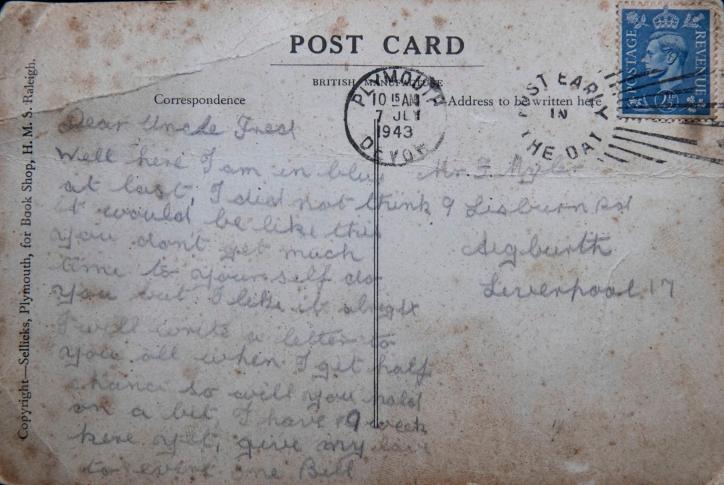 POST CARD
BRITISH MANUFACTURE
Correspondence
Address to be written here
PLYMOUTH
10 15 AM
7 JLY
1943
DEVON
POST EARLY
IN
THE DAY
POSTAGE
REVENUE
2½
Copyright—Sellicks, Plymouth, for Book Shop, H. M. S. Raleigh.
Dear Uncle Fred
Well here I am in blue
at last, I did not think
it would be like this
you dont get much
time to yourself do
you but I like it alright
I will write a letter to
you all when I get half
chance so will you hold
on a bit, I have 9 week
here yet, give my love
to every one Bill
Mr F
9 Lisburn Rd
Aigburth
Liverpool 17